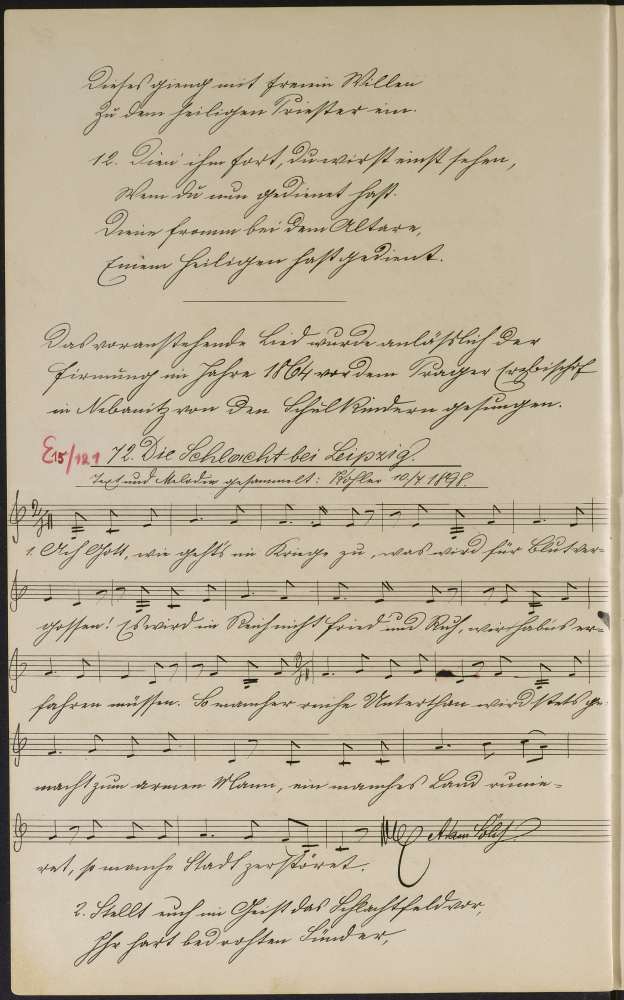 Dieses gieng mit freiem Willen
Zu dem heiligen Priester ein.
12. Dien' ihm fort, du wirst einst sehen,
Wem du nun gedienet hast.
Diene fromm bei dem Altare,
Einem Heiligen hast gedient.
Das voranstehende Lied wurde anläßlich der
Firmung im Jahre 1864 vor dem Prager Erzbischof
in Nebanitz von den Schulkindern gesungen.
E15/121 72. Die Schlacht bei Leipzig.
Text und Melodie gesammelt: Köhler 10/7 1898.
1. Ach Gott, wie geht's im Kriege zu, was wird für Blut ver=
gossen! Es wird im Reich nicht Fried und Ruh, wir haben's er=
fahren müssen. So mancher reiche Unterthan wird stets ge=
macht zum armen Mann, ein manches Land ruinie=
ret, so manche Stadt zerstöret.
Adam
2. Stellt euch im Geist das Schlachtfeld vor,
Ihr hart bedrohten Sünder,